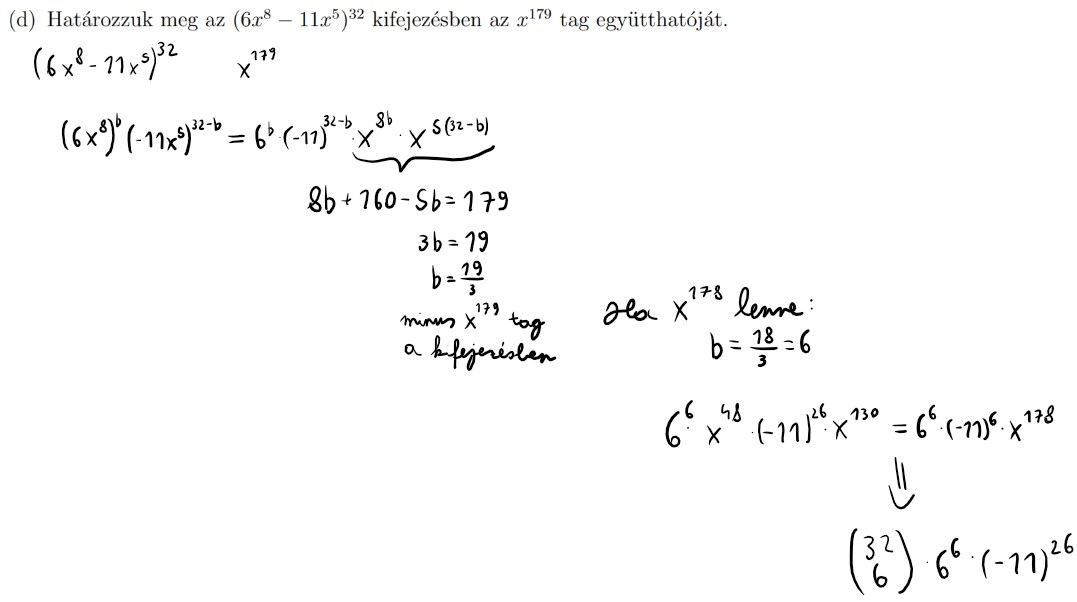 (d) Határozzuk meg az (6x^8 − 11x^5)^32 kifejezésben az x^179 tag együtthatóját.
(6x^8 - 11x^5)^32 x^179
(6x^8)^b (-11x^5)^32-b = 6^b · (-11)^32-b · x^8b · x^5(32-b)
8b + 160 - 5b = 179
3b = 19
b = 19/3
minus x^179 tag
a kifejezésben
Ha x^178 lenne:
b = 18/3 = 6
6^6 · x^48 · (-11)^26 · x^130 = 6^6 · (-11)^6 · x^178
⇓
(32 6) · 6^6 · (-11)^26